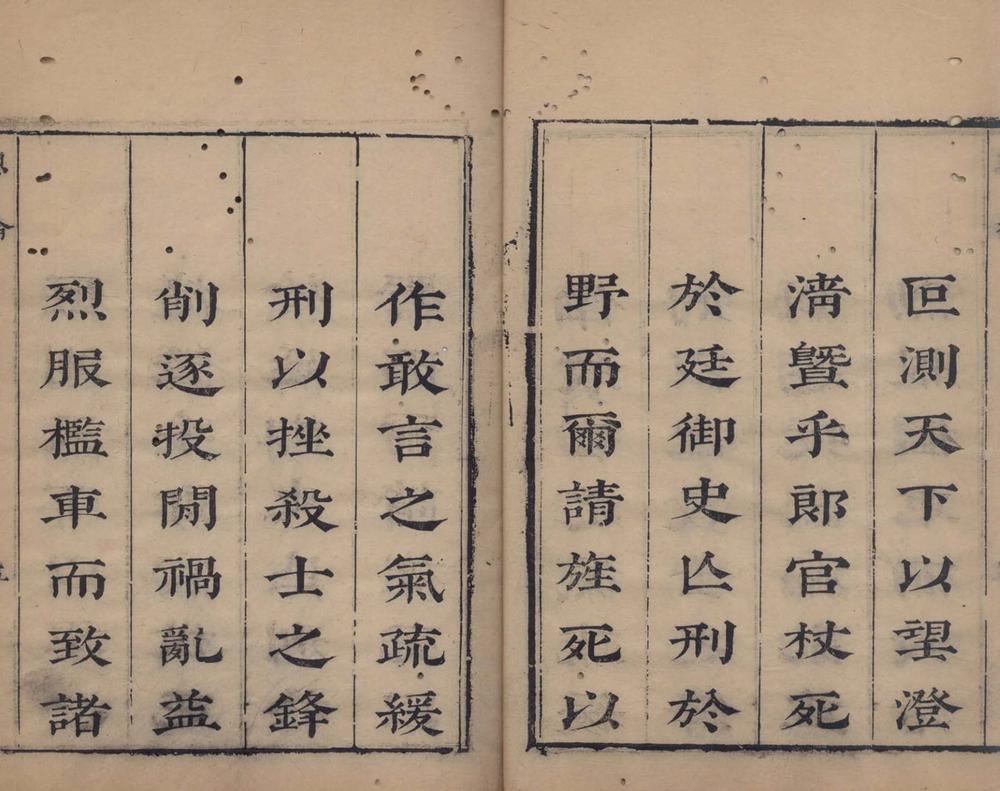 叵測天下以望澄
清曁乎郎官杖死
於廷御史亾刑於
野而爾請旌死以
作敢言之氣疏緩
刑以挫殺士之鋒
削逐投閒禍亂益
烈服檻車而致諸